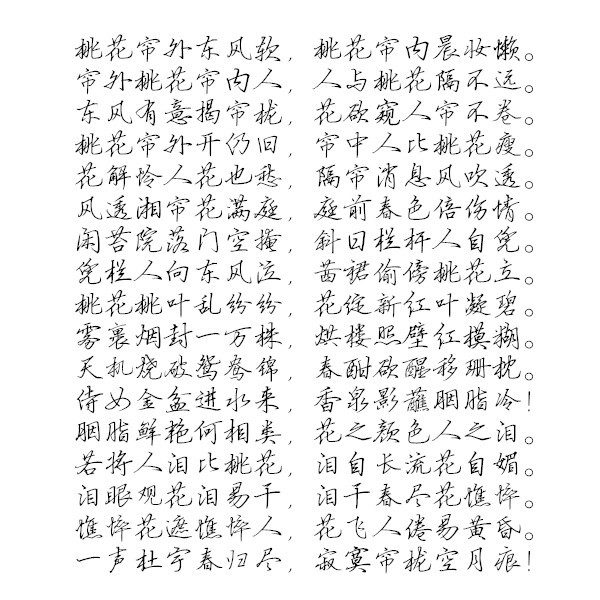 桃花帘外东风软，桃花帘内晨妆懒。
帘外桃花帘内人，人与桃花隔不远。
东风有意揭帘栊，花欲窥人帘不卷。
桃花帘外开仍旧，帘中人比桃花瘦。
花解怜人花也愁，隔帘消息风吹透。
风透湘帘花满庭，庭前春色倍伤情。
闲苔院落门空掩，斜日栏杆人自凭。
凭栏人向东风泣，茜裙偷傍桃花立。
桃花桃叶乱纷纷，花绽新红叶凝碧。
雾裹烟封一万株，烘楼照壁红模糊。
天机烧破鸳鸯锦，春酣欲醒移珊枕。
侍女金盆进水来，香泉影蘸胭脂冷！
胭脂鲜艳何相类，花之颜色人之泪。
若将人泪比桃花，泪自长流花自媚。
泪眼观花泪易干，泪干春尽花憔悴。
憔悴花遮憔悴人，花飞人倦易黄昏。
一声杜宇春归尽，寂寞帘栊空月痕！